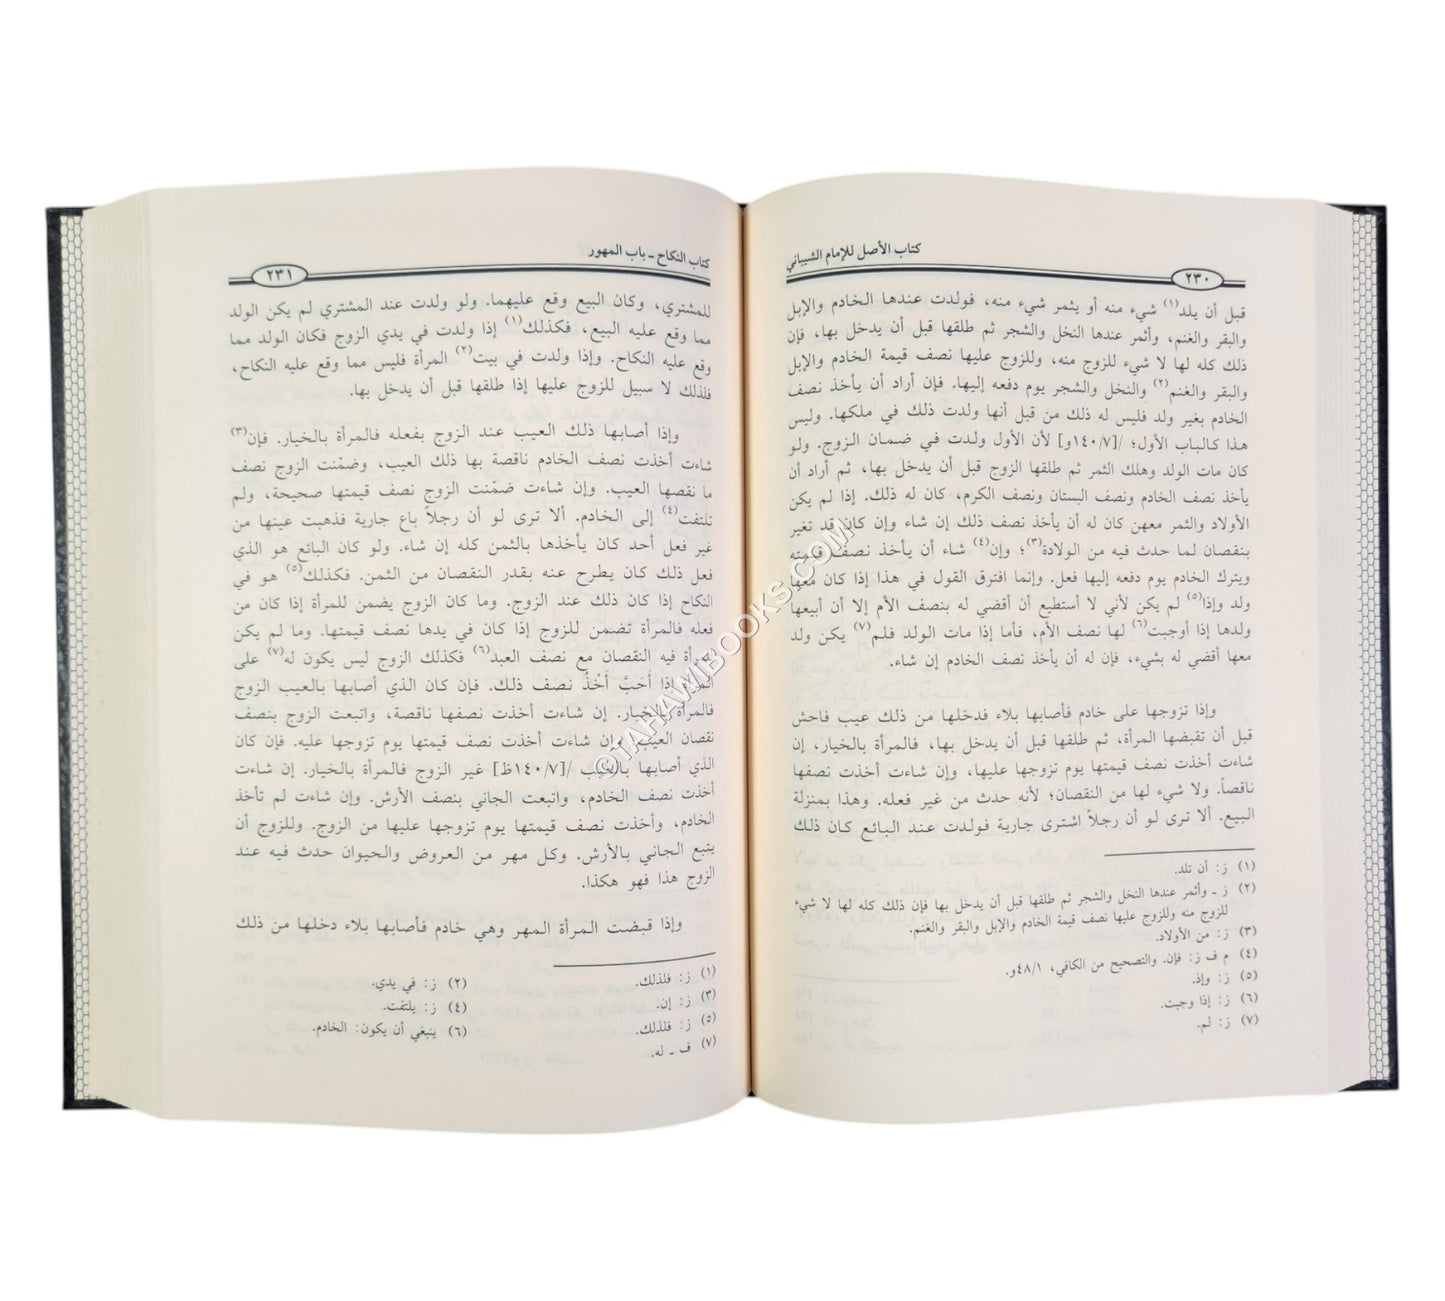 كتاب الأصل للإمام الشيباني
٢٣٠
قبل أن يلد(١) شيء منه أو يثمر شيء منه، فولدت عندها الخادم والإبل
والبقر والغنم، وأثمر عندها النخل والشجر ثم طلقها قبل أن يدخل بها، فإن
ذلك كله لها لا شيء للزوج منه، وللزوج عليها نصف قيمة الخادم والإبل
والبقر والغنم(٢) والنخل والشجر يوم دفعه إليها. فإن أراد أن يأخذ نصف
الخادم بغير ولد فليس له ذلك من قبل أنها ولدت ذلك في ملكها. وليس
هذا كالباب الأول؛ /[١٤٠/٧و] لأن الأول ولدت في ضمان الزوج. ولو
كان مات الولد وهلك الثمر ثم طلقها الزوج قبل أن يدخل بها، ثم أراد أن
يأخذ نصف الخادم ونصف البستان ونصف الكرم، كان له ذلك. إذا لم يكن
الأولاد والثمر معهن كان له أن يأخذ نصف ذلك إن شاء وإن كان قد تغير
بنقصان لما حدث فيه من الولادة(٣)؛ وإن(٤) شاء أن يأخذ نصف قيمته
ويترك الخادم يوم دفعه إليها فعل. وإنما افترق القول في هذا إذا كان معها
ولد وإذا(٥) لم يكن لأني لا أستطيع أن أقضي له بنصف الأم إلا أن أبيعها
ولدها إذا أوجبت(٦) لها نصف الأم، فأما إذا مات الولد فلم(٧) يكن ولد
معها أقضي له بشيء، فإن له أن يأخذ نصف الخادم إن شاء.
وإذا تزوجها على خادم فأصابها بلاء فدخلها من ذلك عيب فاحش
قبل أن تقبضها المرأة، ثم طلقها قبل أن يدخل بها، فالمرأة بالخيار، إن
شاءت أخذت نصف قيمتها يوم تزوجها عليها، وإن شاءت أخذت نصفها
ناقصاً. ولا شيء لها من النقصان؛ لأنه حدث من غير فعله. وهذا بمنزلة
البيع. ألا ترى لو أن رجلاً اشترى جارية فولدت عند البائع كان ذلك
(١) ز: أن تلد.
(٢) ز ـ وأثمر عندها النخل والشجر ثم طلقها قبل أن يدخل بها فإن ذلك كله لها لا شيء
للزوج منه وللزوج عليها نصف قيمة الخادم والإبل والبقر والغنم.
(٣) ز: من الأولاد.
(٤) م ف ز: فإن. والتصحيح من الكافي، ٤٨/١و.
(٥) ز: وإذ.
(٦) ز: إذا وجبت.
(٧) ز: لم.
كتاب النكاح ـ باب المهور
٢٣١
للمشتري، وكان البيع وقع عليهما. ولو ولدت عند المشتري لم يكن الولد
مما وقع عليه البيع، فكذلك(١) إذا ولدت في يدي الزوج فكان الولد مما
وقع عليه النكاح. وإذا ولدت في بيت(٢) المرأة فليس مما وقع عليه النكاح،
فلذلك لا سبيل للزوج عليها إذا طلقها قبل أن يدخل بها.
وإذا أصابها ذلك العيب عند الزوج بفعله فالمرأة بالخيار. فإن(٣)
شاءت أخذت نصف الخادم ناقصة بها ذلك العيب، وضمّنت الزوج نصف
ما نقصها العيب. وإن شاءت ضمّنت الزوج نصف قيمتها صحيحة، ولم
تلتفت(٤) إلى الخادم. ألا ترى لو أن رجلاً باع جارية فذهبت عينها من
غير فعل أحد كان يأخذها بالثمن كله إن شاء. ولو كان البائع هو الذي
فعل ذلك كان يطرح عنه بقدر النقصان من الثمن. فكذلك(٥) هو في
النكاح إذا كان ذلك عند الزوج. وما كان الزوج يضمن للمرأة إذا كان من
فعله فالمرأة تضمن للزوج إذا كان في يدها نصف قيمتها. وما لم يكن
للمرأة فيه النقصان مع نصف العبد(٦) فكذلك الزوج ليس يكون له(٧) على
المرأة إذا أَحَبَّ أَخْذَ نصف ذلك. فإن كان الذي أصابها بالعيب الزوج
فالمرأة بالخيار. إن شاءت أخذت نصفها ناقصة، واتبعت الزوج بنصف
نقصان العيب. وإن شاءت أخذت نصف قيمتها يوم تزوجها عليه. فإن كان
الذي أصابها بالعيب /[١٤٠/٧ظ] غير الزوج فالمرأة بالخيار. إن شاءت
أخذت نصف الخادم، واتبعت الجاني بنصف الأرش. وإن شاءت لم تأخذ
الخادم، وأخذت نصف قيمتها يوم تزوجها عليها من الزوج. وللزوج أن
يتبع الجاني بالأرش. وكل مهر من العروض والحيوان حدث فيه عند
الزوج هذا فهو هكذا.
وإذا قبضت المرأة المهر وهي خادم فأصابها بلاء دخلها من ذلك
(١) ز: فلذلك. (٢) ز: في يدي.
(٣) ز: إن. (٤) ز: يلتفت.
(٥) ز: فلذلك. (٦) ينبغي أن يكون: الخادم.
(٧) ف ـ له.
©TAHAWIBOOKS.COM